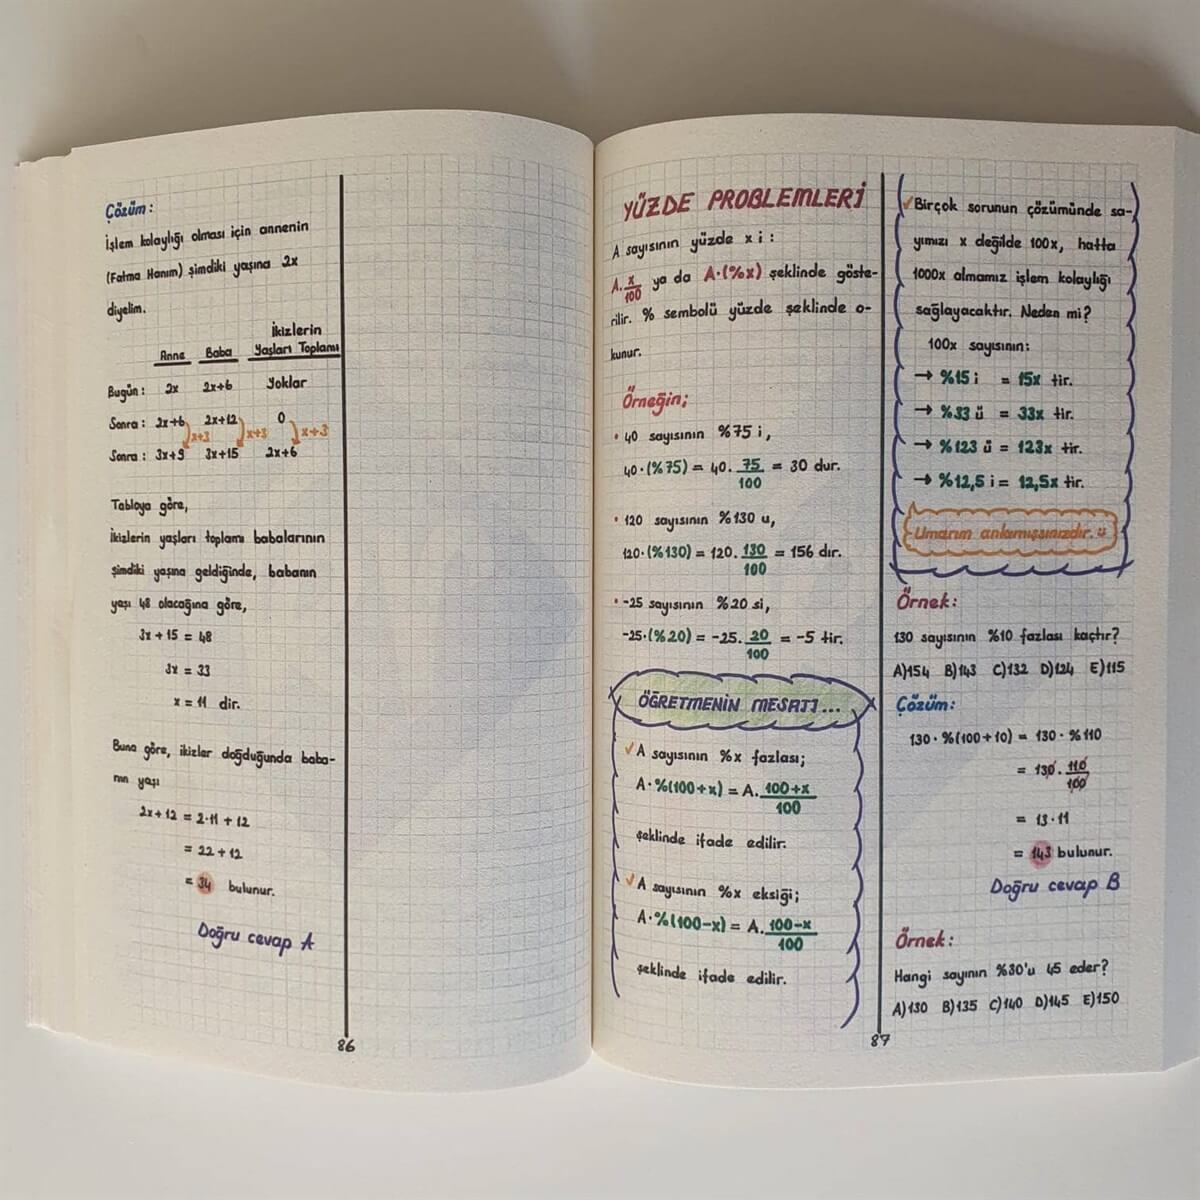 Çözüm:
İşlem kolaylığı olması için annenin
(Fatma Hanım) şimdiki yaşına 2x
diyelim.
İkizlerin
Anne Baba Yaşları Toplamı
Bugün: 2x 2x+6 Yoklar
Sonra: 2x+6 2x+12 0
x+3 x+3 x+3
Sonra: 3x+9 3x+15 2x+6
Tabloya göre,
İkizlerin yaşları toplamı babalarının
şimdiki yaşına geldiğinde, babanın
yaşı 48 olacağına göre,
3x+15 = 48
3x = 33
x = 11 dir.
Buna göre, ikizler doğduğunda baba-
nın yaşı
2x+12 = 2·11 + 12
= 22+12
= 34 bulunur.
Doğru cevap A
86
YÜZDE PROBLEMLERİ
A sayısının yüzde x i:
A.x/100 ya da A·(%x) şeklinde göste-
rilir. % sembolü yüzde şeklinde o-
kunur.
Örneğin;
• 40 sayısının %75 i,
40·(%75) = 40. 75/100 = 30 dur.
• 120 sayısının %130 u,
120·(%130) = 120. 130/100 = 156 dır.
• -25 sayısının %20 si,
-25·(%20) = -25. 20/100 = -5 tir.
ÖĞRETMENİN MESAJI...
✓A sayısının %x fazlası;
A·%(100+x) = A. 100+x/100
şeklinde ifade edilir.
✓A sayısının %x eksiği;
A·%(100-x) = A. 100-x/100
şeklinde ifade edilir.
✓Birçok sorunun çözümünde sa-
yımızı x değilde 100x, hatta
1000x almamız işlem kolaylığı
sağlayacaktır. Neden mi?
100x sayısının:
→ %15 i = 15x tir.
→ %33 ü = 33x tir.
→ %123 ü = 123x tir.
→ %12,5 i = 12,5x tir.
Umarım anlamışsınızdır. ü
Örnek:
130 sayısının %10 fazlası kaçtır?
A)154 B)143 C)132 D)124 E)115
Çözüm:
130·%(100+10) = 130·%110
= 130. 110/100
= 13·11
= 143 bulunur.
Doğru cevap B
Örnek:
Hangi sayının %30'u 45 eder?
A)130 B)135 C)140 D)145 E)150
87